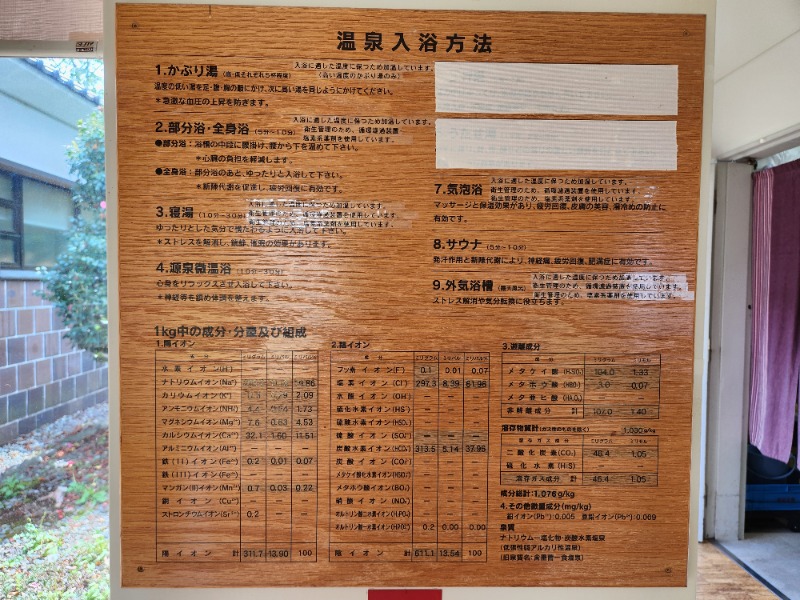 温泉入浴方法
1.かぶり湯
入浴に適した温度に保つため加温しています。
(高い温度のかぶり湯のみ)
温度の低い湯を足・腰・胸の順にかけ、次に高い湯を同じようにかけてください。
*急激な血圧の上昇を防ぎます。
2.部分浴・全身浴(5分〜10分)
入浴に適した温度に保つため加温しています。
衛生管理のため、循環濾過装置、
塩素系薬剤を使用しています。
●部分浴:浴槽の中段に腰掛け、腰から下を温めて下さい。
*心臓の負担を軽減します。
●全身浴:部分浴のあと、ゆったりと入浴して下さい。
*新陳代謝を促進し、疲労回復に有効です。
3.寝湯(10分〜30分)
入浴に適した温度に保つため加温しています。
ゆったりとした気分で
*ストレスを解消し、
4.源泉微温浴(10分〜30分)
心身をリラックスさせ入浴して下さい。
*神経等を鎮め体調を整えます。
7.気泡浴
入浴に適した温度に保つため加温しています。
衛生管理のため、循環濾過装置を使用しています。
衛生管理のため、塩素系薬剤を使用しています。
マッサージと保温効果があり、疲労回復、皮膚の美容、湯冷めの防止に
有効です。
8.サウナ(5分〜10分)
発汗作用と新陳代謝により、神経痛、疲労回復、肥満症に有効です。
9.外気浴槽(露天風呂)
入浴に適した温度に保つため加温しています。
衛生管理のため、循環濾過装置を使用しています。
衛生管理のため、塩素系薬剤を使用しています。
ストレス解消や気分転換に役立ちます。
1kg中の成分・分量及び組成
1.陽イオン
成分 ミリグラム ミリバル ミリバル%
水素イオン(H⁺)
ナトリウムイオン(Na⁺)
カリウムイオン(K⁺) 2.09
アンモニウムイオン(NH₄⁺) 1.73
マグネシウムイオン(Mg²⁺) 7.6 0.63 4.53
カルシウムイオン(Ca²⁺) 32.1 1.60 11.51
アルミニウムイオン(Al³⁺) ー ー ー
鉄(II)イオン(Fe²⁺) 0.2 0.01 0.07
鉄(III)イオン(Fe³⁺) ー ー ー
マンガン(II)イオン(Mn²⁺) 0.7 0.03 0.22
銅イオン(Cu²⁺) ー ー ー
ストロンチウムイオン(Sr²⁺) 0.2
陽イオン計 311.7 13.90 100
2.陰イオン
成分 ミリグラム ミリバル ミリバル%
フッ素イオン(F⁻) 0.1 0.01 0.07
塩素イオン(Cl⁻) 297.3 8.39 61.96
水酸イオン(OH⁻) ー ー ー
硫化水素イオン(HS⁻) ー ー ー
硫酸水素イオン(HSO₄⁻) ー ー ー
硫酸イオン(SO₄²⁻) ー ー ー
炭酸水素イオン(HCO₃⁻) 313.5 5.14 37.95
炭酸イオン(CO₃²⁻) ー ー ー
メタケイ酸水素イオン(HSiO₃⁻) ー ー ー
メタホウ酸イオン(BO₂⁻) ー ー ー
硝酸イオン(NO₃⁻) ー ー ー
0.2 0.00 0.00
陰イオン計 611.1 13.54 100
3.遊離成分
成分 ミリグラム ミリモル
メタケイ酸(H₂SiO₃) 104.0 1.33
メタホウ酸(HBO₂) 3.0 0.07
メタ亜ヒ酸(HAsO₂) ー ー
非解離成分計 107.0 1.40
溶存物質計(ガス性のものを除く) 1.030g/kg
溶存ガス成分 ミリグラム ミリモル
二酸化炭素(CO₂) 46.4 1.05
硫化水素(H₂S) ー ー
溶存ガス成分計 46.4 1.05
成分総計:1.076g/kg
4.その他微量成分(mg/kg)
鉛イオン(Pb²⁺):0.005
泉質
ナトリウム-塩化物・炭酸水素塩泉
(低張性弱アルカリ性温泉)
(旧泉質名:含重曹-食塩泉)